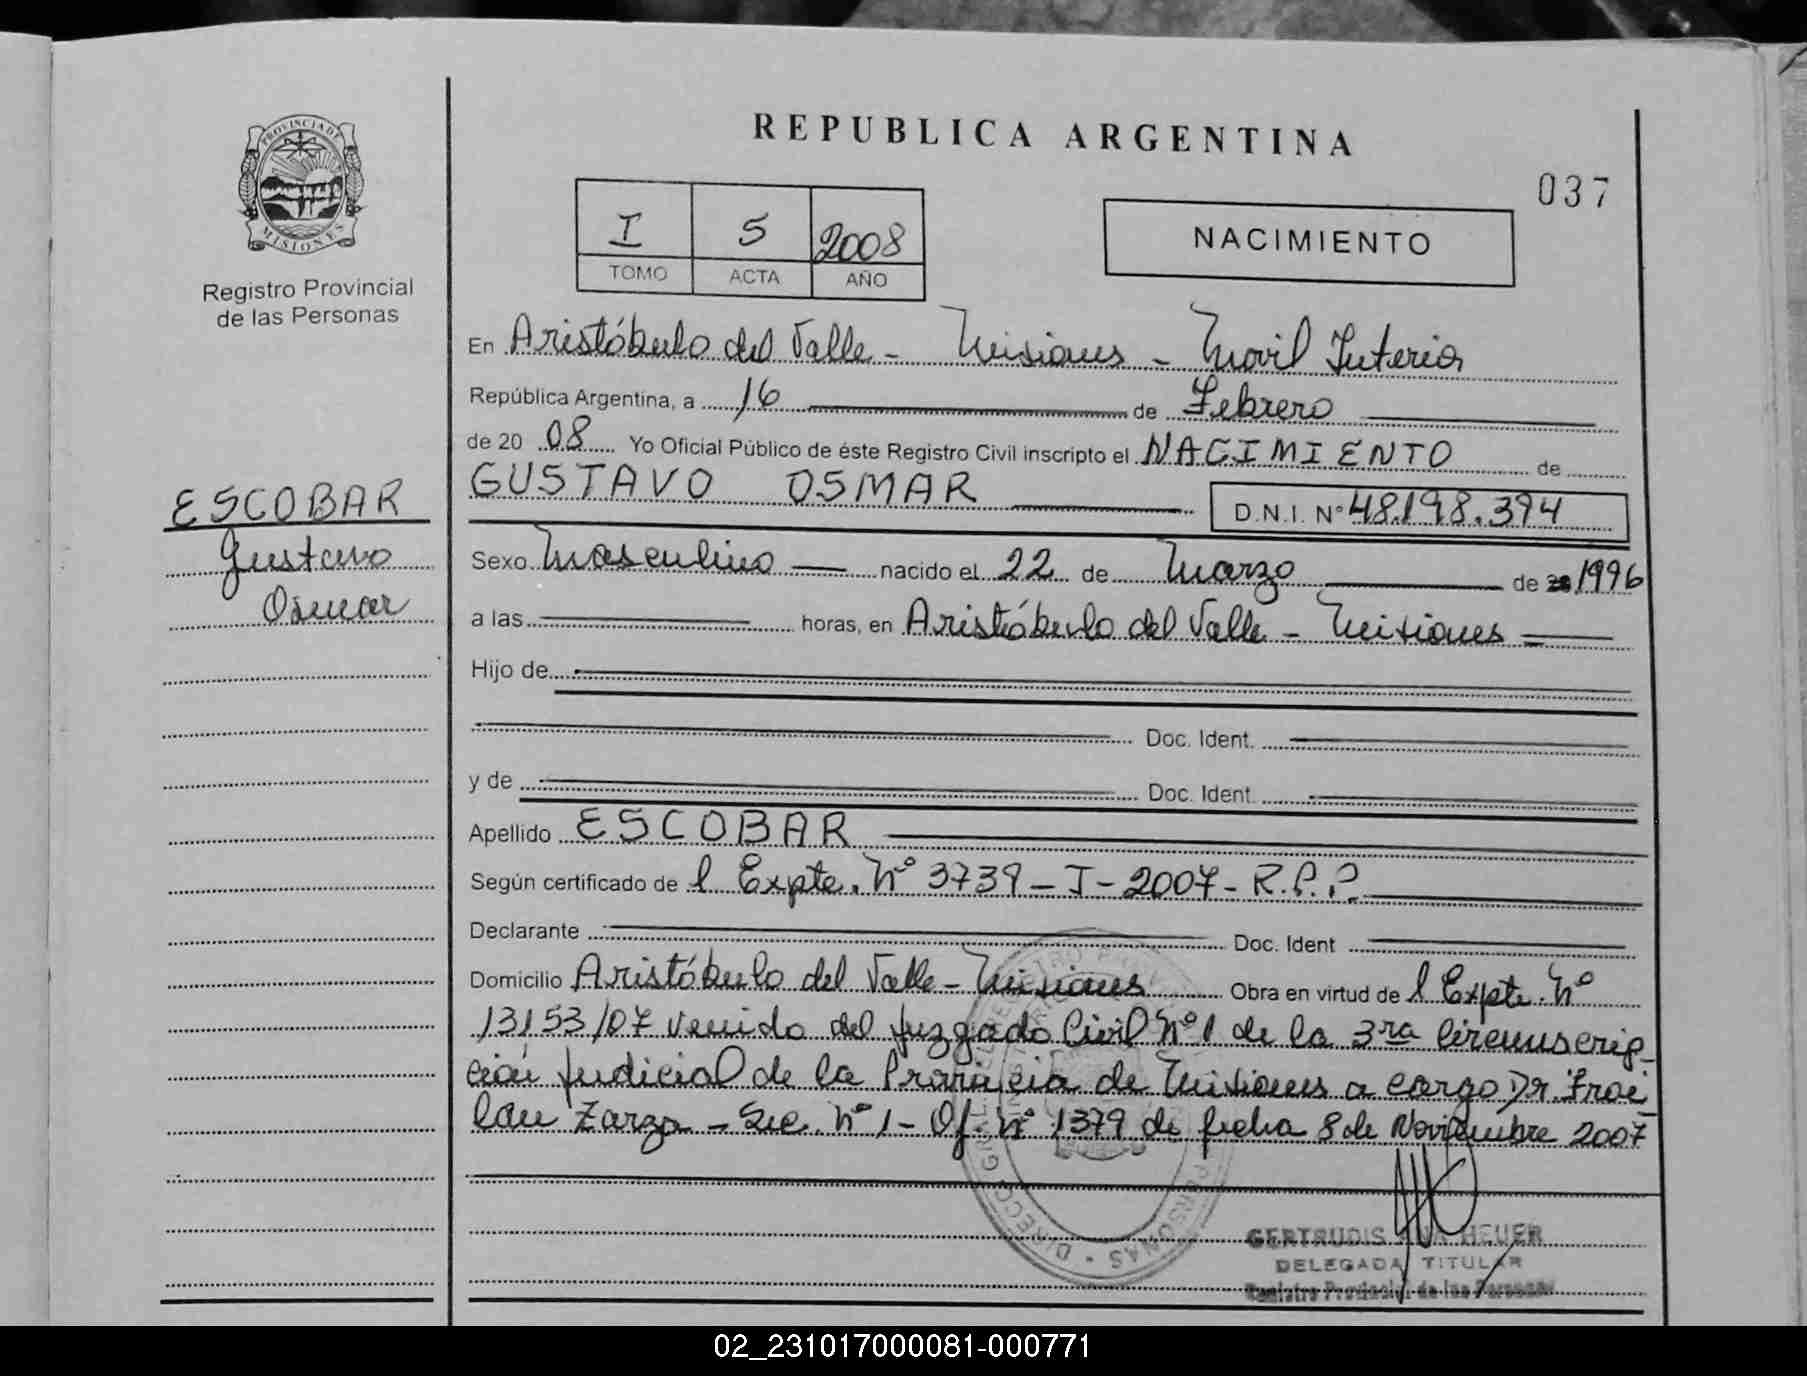 REPUBLICA ARGENTINA
037
PROVINCIA DE
MISIONES
Registro Provincial
de las Personas
I 5 2008
TOMO ACTA AÑO
NACIMIENTO
En Aristóbulo del Valle - Misiones - Movil Interior
República Argentina, a 16 de Febrero
de 20 08 Yo Oficial Público de éste Registro Civil inscripto el NACIMIENTO de
GUSTAVO OSMAR D.N.I. Nº 48.198.394
ESCOBAR
Gustavo
Osmar
Sexo Masculino nacido el 22 de Marzo de 1996
a las horas, en Aristóbulo del Valle - Misiones
Hijo de
Doc. Ident.
y de Doc. Ident.
Apellido ESCOBAR
Según certificado de l Expte. Nº 3739 - I - 2007 - R.P.P.
Declarante Doc. Ident
Domicilio Aristóbulo del Valle - Misiones Obra en virtud de l Expte. Nº
13153/07 venido del Juzgado Civil Nº 1 de la 3ra Circunscrip-
ción Judicial de la Provincia de Misiones a cargo Dr. Froi-
lan Zarza - Sec. Nº 1 - Of. Nº 1379 de fecha 8 de Noviembre 2007
GERTRUDIS HEUER
DELEGADA TITULAR
Registro Provincial de las Personas
02_231017000081-000771